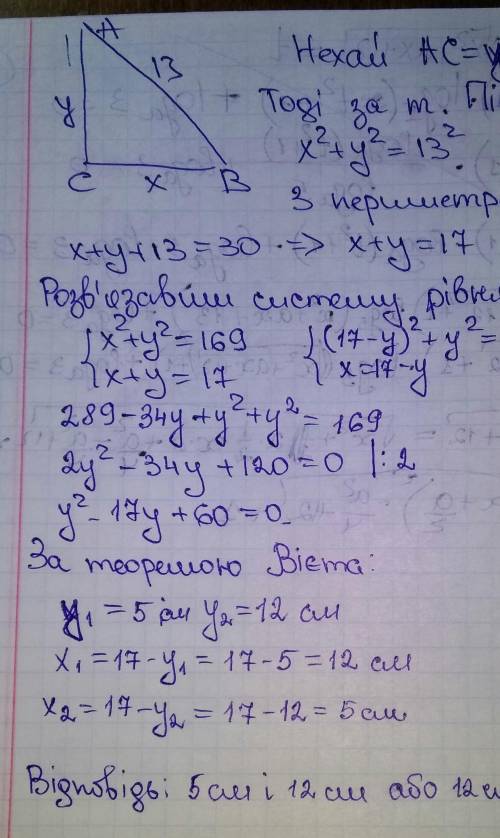 A
13
y
C x B
Нехай AC=y
Тоді за т. Пі
x²+y²=13².
З периметр
x+y+13=30 => x+y=17
Розв'язавши систему рівня
{x²+y²=169 {(17-y)²+y²=
{x+y=17 {x=17-y
289-34y+y²+y²=169
2y²-34y+120=0 |:2
y²-17y+60=0.
За теоремою Вієта:
y₁=5 см y₂=12 см
x₁=17-y₁=17-5=12 см
x₂=17-y₂=17-12=5 см
Відповідь: 5 см і 12 см або 12 с